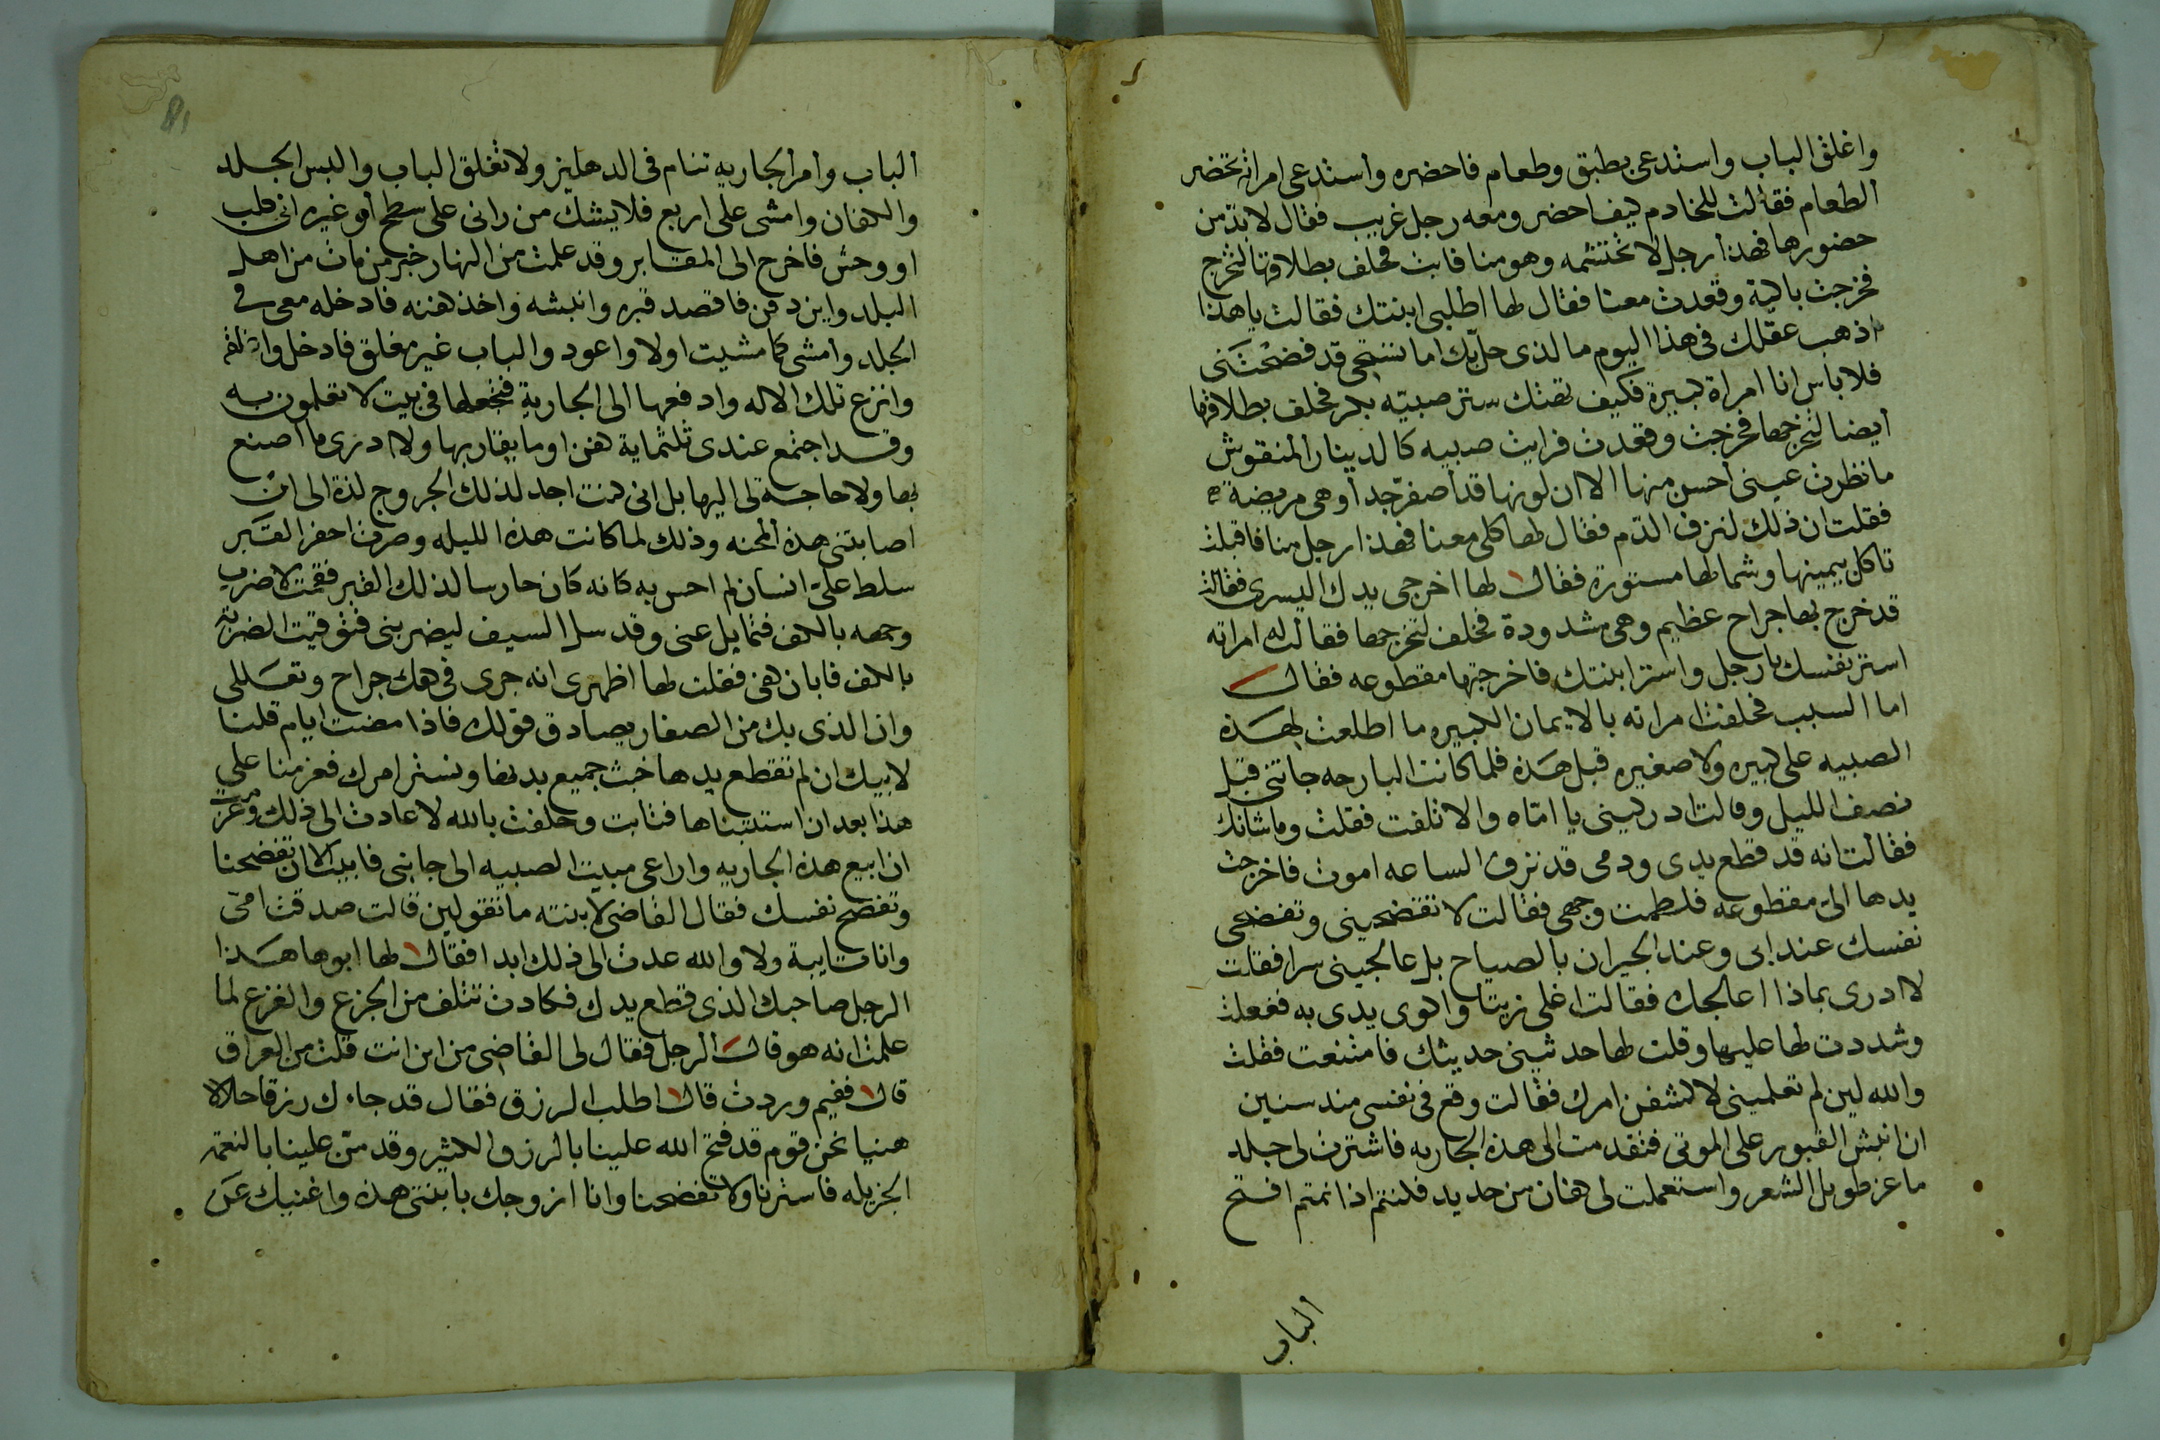 واغلق الباب واستدعى بطبق وطعام فاحضره واستدعى امراته تحضر
الطعام فقالت للخادم كيف احضر ومعه رجل غريب فقال لا بد من
حضورها فهذا رجل لا تحتشمه وهو منا فابت فحلف بطلاقها لتخرج
فخرجت باكية وقعدت معنا فقال لها اطلبى ابنتك فقالت يا هذا
اذهب عقلك فى هذا اليوم ما الذى حل بك اما تستحى قد فضحتنى
فلا باس انا امراة كبيرة فكيف تهتك ستر صبيه بكر فحلف بطلاقها
ايضا لتخرجها فخرجت وقعدت فرايت صبيه كالدينار المنقوش
ما نظرت عينى احسن منها الا ان لونها قد اصفر جدا وهى مريضة
فقلت ان ذلك لنزف الدم فقال لها كلى معنا فهذا رجل منا فاقبلت
تاكل بيمينها وشمالها مستورة فقال لها اخرجى يدك اليسرى فقالت
قد خرج بها جراح عظيم وهى مشدودة فحلف لتخرجها فقالت له امراته
استر نفسك يا رجل واستر ابنتك فاخرجتها مقطوعه فقال
اما السبب فحلفت امراته بالايمان الكبيره ما اطلعت لهذه
الصبيه على كبيره ولا صغيره قبل هذه فلما كانت البارحه جاتنى قبل
نصف الليل وقالت ادركينى يا اماه والا تلفت فقلت وما شانك
فقالت انه قد قطع يدى ودمى قد نزف الساعه اموت فاخرجت
يدها الى مقطوعه فلطمت وجهى فقالت لا تفضحينى وتفضحى
نفسك عند ابى وعند الجيران بالصياح بل عالجينى سرا فقلت
لا ادرى بماذا اعالجك فقالت اغلى زيتا واكوى يدى به ففعلت
وشددت لها عليها وقلت لها حدثينى حديثك فامتنعت فقلت
والله لين لم تعلمينى لاكشفن امرك فقالت وقع فى نفسى منذ سنين
ان انبش القبور على الموتى فتقدمت الى هذه الجاريه فاشترت لى جلد
ماعز طويل الشعر واستعملت لى كفان من حديد فكنتم اذا نمتم افتح
الباب
الباب وامر الجاريه تنام فى الدهليز ولا تغلق الباب والبس الجلد
والكفان وامشى على اربع فلا يشك من رانى على سطح او غيره انى كلب
او وحش فاخرج الى المقابر وقد علمت من النهار خبر من مات من اهل
البلد واين دفن فاقصد قبره وانبشه واخذ كفنه فادخله معى فى
الجلد وامشى كما مشيت اولا واعود والباب غير مغلق فادخل واغلقه
وانزع تلك الاله وادفعها الى الجارية فتجعلها فى بيت لا تعلمون به
وقد اجتمع عندى ثلثماية كفن او ما يقاربها ولا ادرى ما اصنع
بها ولا حاجة لى اليها بل انى كنت اجد لذلك الخروج لذة الى ان
اصابتنى هذه المحنه وذلك لما كانت هذه الليله وصرت احفر القبر
سلط على انسان لم احس به كانه كان حارسا لذلك القبر فقمت لاضرب
وجهه بالكف فتمايل عنى وقد سل السيف ليضربنى فتوقيت الضربة
بالكف فابان كفى فقلت لها اظهرى انه جرى فى كفك جراح وتعللى
وان الذى بك من الصفار يصادق قولك فاذا مضت ايام قلنا
لابيك ان لم تقطع يدها خبث جميع بدنها ونستر امرك فعزمنا على
هذا بعد ان استتبناها فتابت وحلفت بالله لا عادت الى ذلك وعزمت
ان ابيع هذه الجاريه واراعى مبيت الصبيه الى جانبى فابيت الا ان تفضحنا
وتفضح نفسك فقال القاضى لابنته ما تقولين قالت صدقت امى
وانا تايبة ولا والله عدت الى ذلك ابدا فقال لها ابوها هذا
الرجل صاحبك الذى قطع يدك فكادت تتلف من الجزع والفزع لما
علمت انه هو قال الرجل فقال لى القاضى من اين انت قلت من العراق
قال ففيم وردت قال اطلب الرزق فقال قد جاءك رزقا حلالا
هنيا نحن قوم قد فتح الله علينا بالرزق الكثير وقد من علينا بالنعمة
الجزيله فاسترنا ولا تفضحنا وانا ازوجك بابنتى هذه واغنيك عن